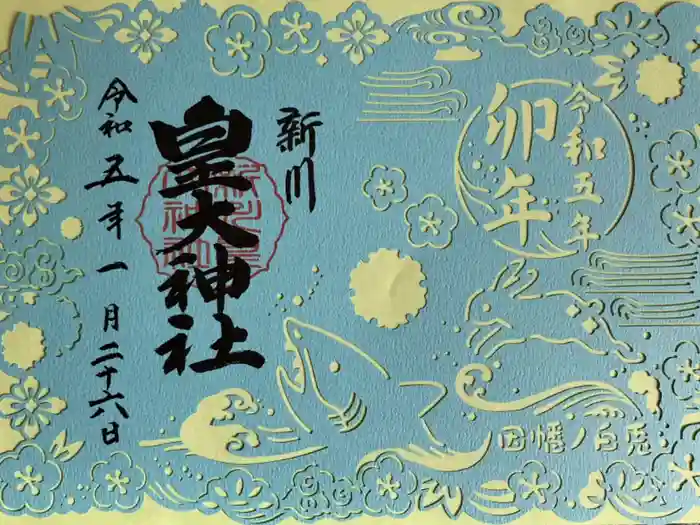 新川
皇大神社
令和五年一月二十六日
令和五年
卯年
因幡ノ白兎